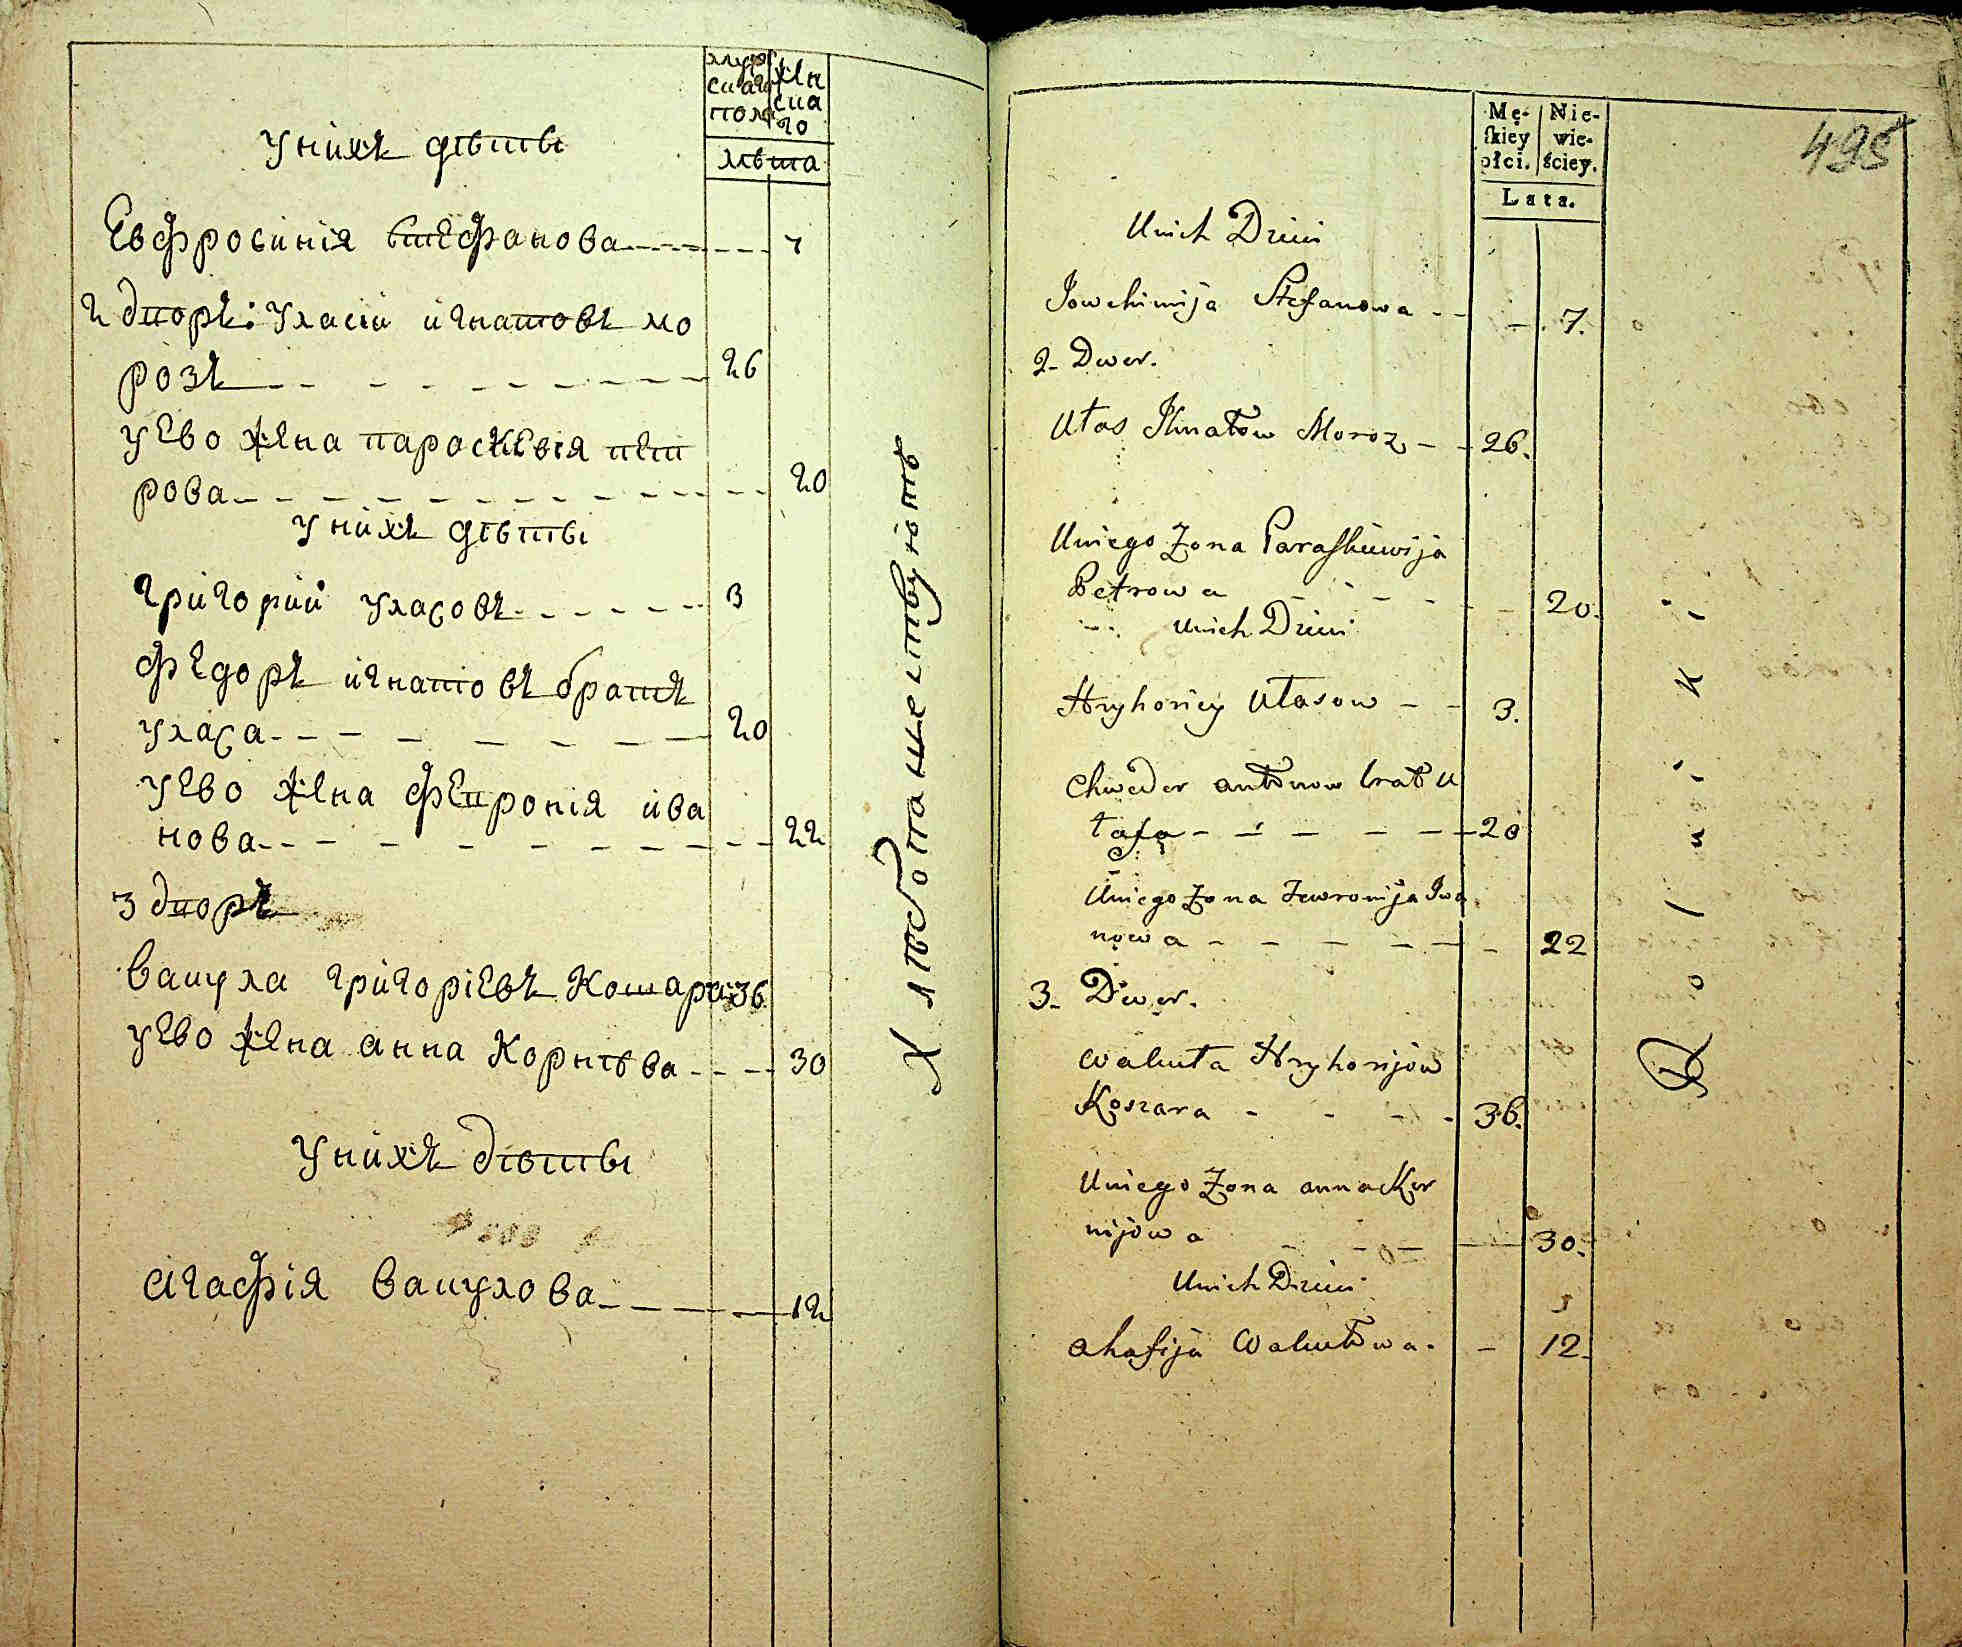 муж
скаго
пола
жен
ска
го
лѣта
у нихъ дѣти
Евфросинія стефанова 7
2 дворъ: уласій игнатовъ мо
розъ 26
у ево жена параскевія пет
рова 20
у нихъ дѣти
григорий уласовъ 3
федоръ игнатовъ братъ
уласа 20
у ево жена февронія ива
нова 22
3 дворъ
вакула григоріевъ кошара 36
у ево жена анна корнѣва 30
у нихъ дѣти
агафія вакулова 12
Хлѣбопашествуютъ
Mę-
skiey
płci.
Nie-
wie-
ściey.
Lata.
495
Unich Dzieci
Jowchimija Stefanowa 7.
2. Dwor.
Ułas Ihnatow Moroz 26.
Uniego Zona Paraskiewija
Petrowa 20.
Unich Dzieci
Hryhoriey Ułasow 3.
Chweder antonow brat U
łasa 20
Uniego Zona Zewronija Iwa
nowa 22
3. Dwor.
Wakuła Hryhorijow
Koszara 36.
Uniego Zona anna Kor
nijowa 30.
Unich Dzieci
ahafija Wakułowa. 12.
Rolniki